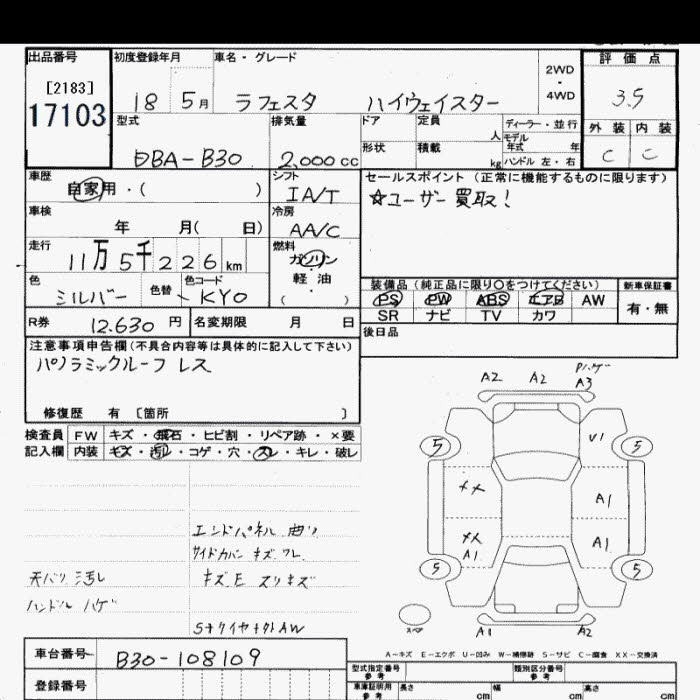 出品番号 初度登録年月 車名・グレード 2WD・4WD 評価点
[2183]
17103
18 5月 ラフェスタ ハイウェイスター 3.5
型式 排気量 ドア 定員 人 ディーラー・並行 外装 内装
モデル年式 年
DBA-B30 2,000cc 形状 積載 kg ハンドル 左・右 C C
車歴 シフト セールスポイント(正常に機能するものに限ります)
自家用・( ) IA/T ☆ユーザー買取!
車検 冷房
年 月( 日) AA/C
走行 燃料
11万5千226km ガソリン・軽油
( )
色 色替 色コード 装備品(純正品に限り○をつけてください) 新車保証書
シルバー KYO PS PW ABS エアB AW 有・無
SR ナビ TV カワ
R券 12,630円 名変期限 月 日 後日品
注意事項申告欄(不具合内容等は具体的に記入して下さい)
パノラミックルーフレス
修復歴 有 [箇所 ]
検査員 FW キズ・飛石・ヒビ割・リペア跡・×要
記入欄 内装 キズ・汚レ・コゲ・穴・スレ・キレ・破レ
A2 A2 Pハゲ
A3
5 V1 5
XX A1
XX A1
A1
5 5
スペア A1 A2
エンドパネル 曲リ
サイドカバー キズ ワレ
天バリ 汚レ キズE スリキズ
ハンドル ハゲ
A−キズ E−エクボ U−凹み W−補修跡 S−サビ C−腐食 XX−交換済
車台番号 B30-108109
登録番号
型式指定番号 参考 類別区分番号 参考
車庫証明用 参考 長さ cm 幅 cm 高さ cm